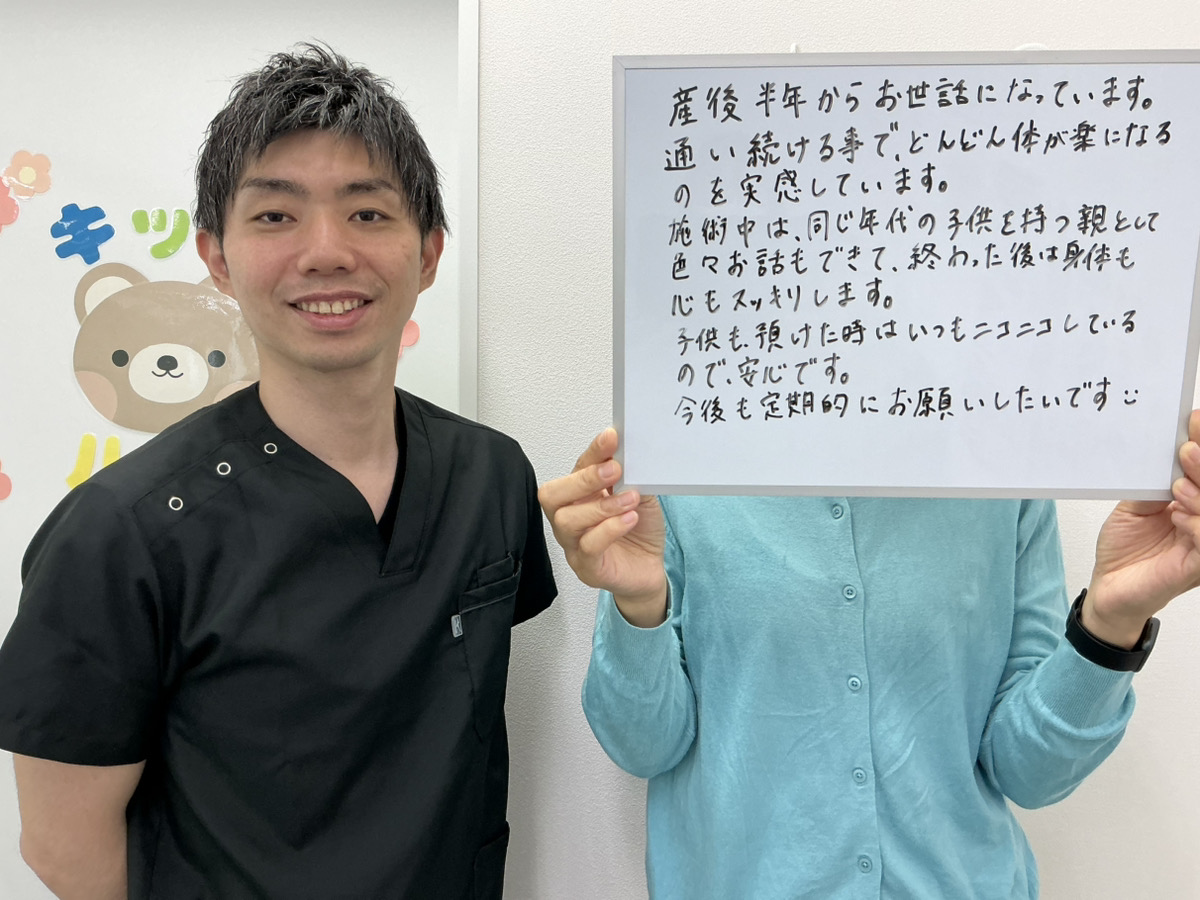 キッ
産後半年からお世話になっています。
通い続ける事で、どんどん体が楽になる
のを実感しています。
施術中は、同じ年代の子供を持つ親として
色々お話もできて、終わった後は身体も
心もスッキリします。
子供も、預けた時はいつもニコニコしている
ので、安心です。
今後も定期的にお願いしたいです